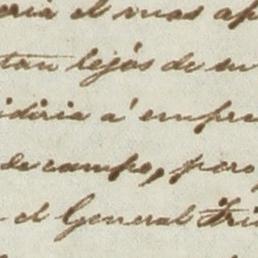 eria el mas ap
tan lejós de su
idiria á empre
de campo, pero
el General Fri